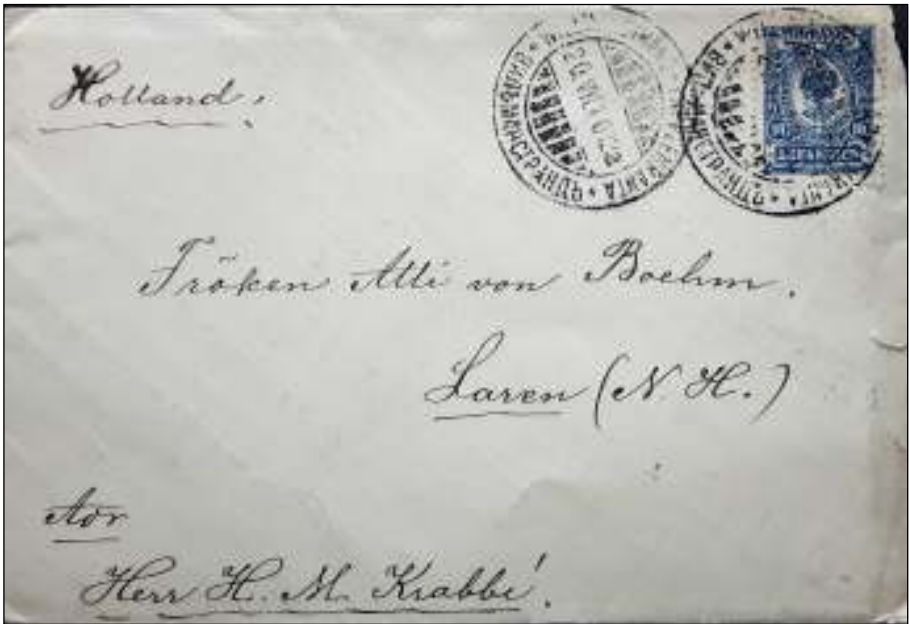 Holland.
Fröken Alli von Boehm.
Laren (N. H.)
Adr
Herr H. M. Krabbé.